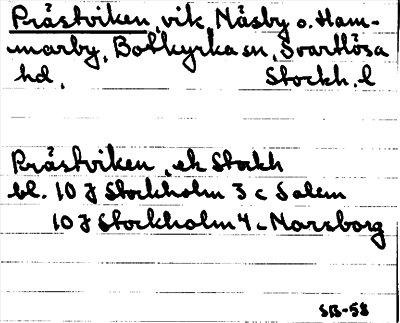 Prästviken, vik, Näsby o. Ham-
marby, Botkyrka sn, Svartlösa
hd, Stockh. l
Prästviken, ek Stockh
bl. 10 J Stockholm 3 c Salem
10 J Stockholm 4 c Norsborg
SB-58